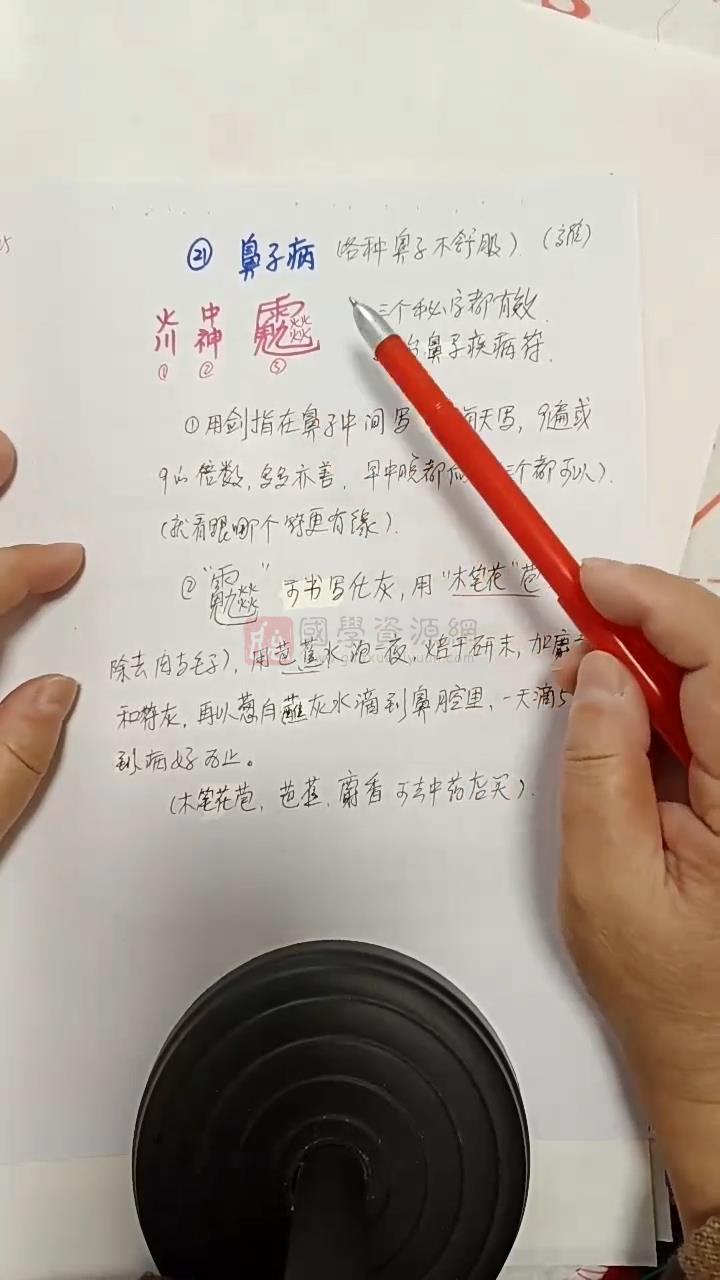 ㉑ 鼻子病 (各种鼻子不舒服).
三个秘字都有效.
鼻子疾病符.
① ② ③
①用剑指在鼻子中间写 每天写, 9遍或
9的倍数, 多多亦善. 早中晚都 三个都可以).
(就看跟哪个符更有缘).
② 可书写化灰, 用"木笔花"苞
國學資源網
除去肉与毛子), 用芭蕉水泡一夜, 焙干研末, 加麝
和符灰, 再以葱白蘸灰水滴到鼻腔里, 一天滴5
到病好为止。
(木笔花苞, 芭蕉, 麝香 可去中药店买).